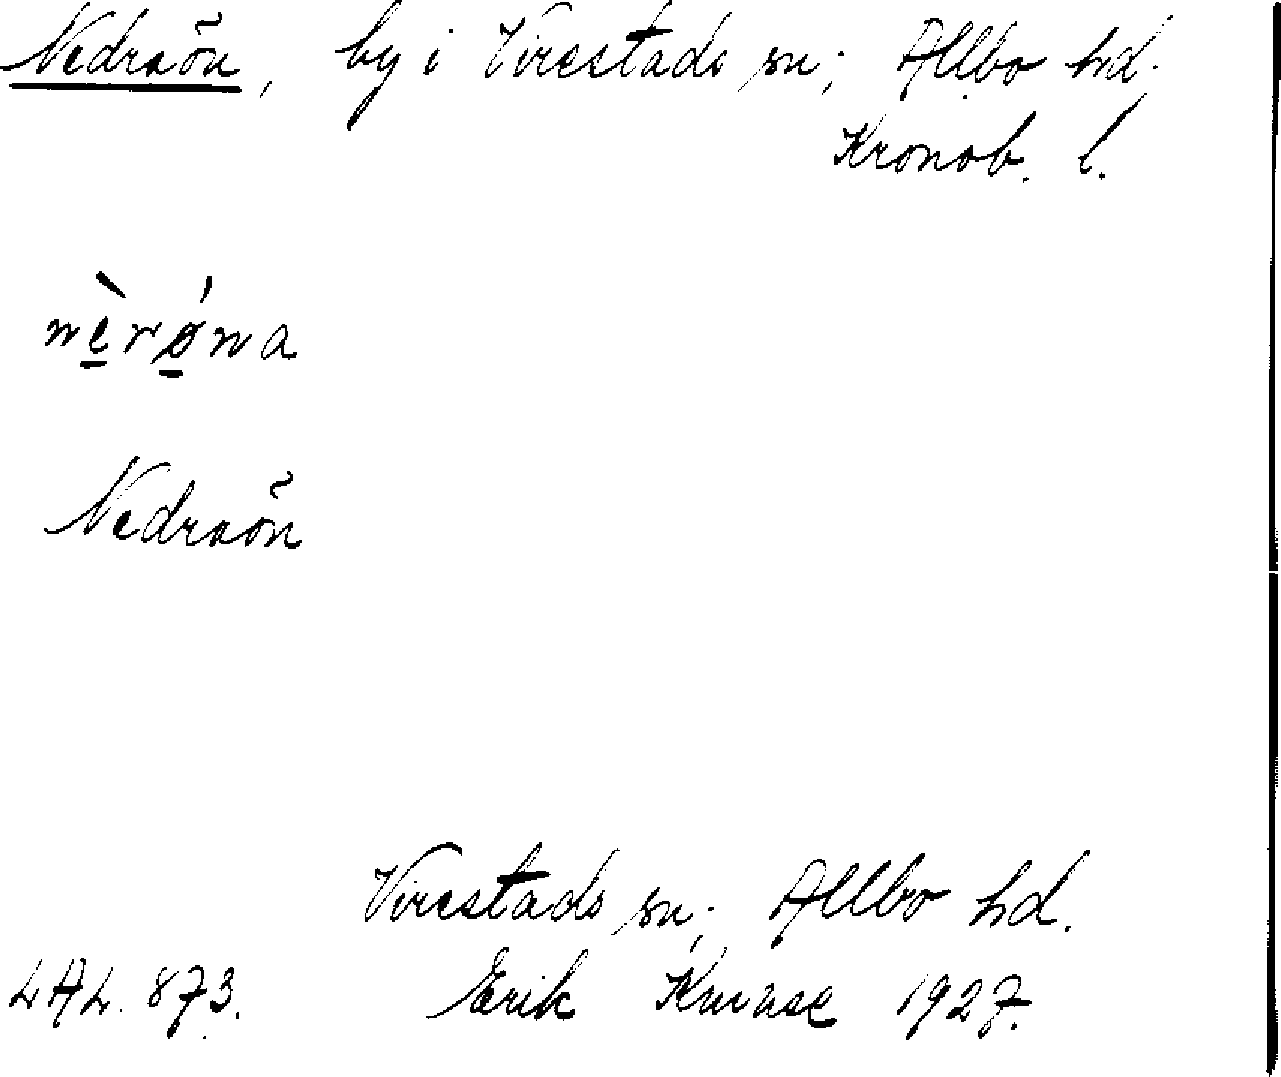 Nedraön, by i Virestads sn; Allbo hd.
Kronob. l.
nèrǿna
Nedraön
Virestads sn; Allbo hd.
LAL. 873. Erik Kruuse 1927.